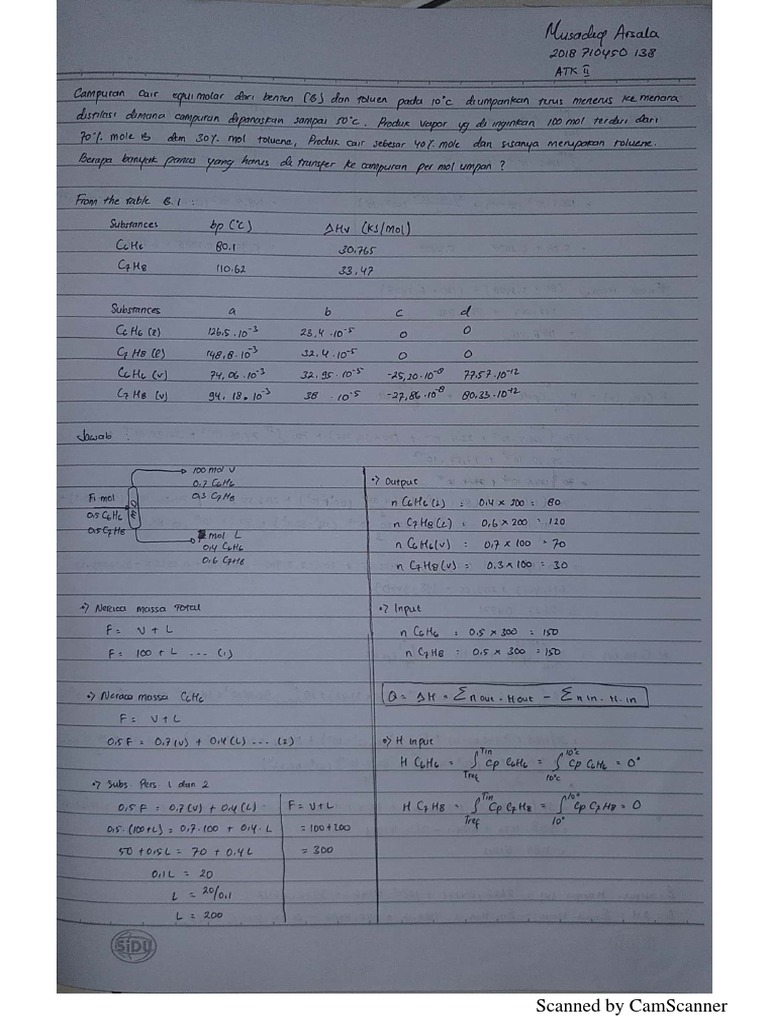 Musadeq Arsala
2018 710450 138
ATK II
Campuran cair equimolar dari benzen (B) dan toluen pada 10°c diumpankan terus menerus ke menara
distilasi dimana campuran dipanaskan sampai 50°c. Produk vapor yg di inginkan 100 mol terdiri dari
70% mole B dan 30% mol toluene, Produk cair sebesar 40% mole dan sisanya merupakan toluene.
Berapa banyak panas yang harus di transfer ke campuran per mol umpan ?
From the table B.1 :
Substances bp (°c) ΔHv (KJ/mol)
C6H6 80.1 30.765
C7H8 110.62 33.47
Substances a b c d
C6H6 (l) 126.5 . 10^-3 23,4 . 10^-5 0 0
C7H8 (l) 148,8 . 10^-3 32.4 . 10^-5 0 0
C6H6 (v) 74,06 . 10^-3 32,95 . 10^-5 -25,20 . 10^-8 77.57 . 10^-12
C7H8 (v) 94,18 . 10^-3 38 . 10^-5 -27,86 . 10^-8 80.33 . 10^-12
Jawab :
100 mol V
0.7 C6H6
0.3 C7H8
F1 mol
0.5 C6H6
0.5 C7H8
mol L
0.4 C6H6
0.6 C7H8
•) Neraca massa Total
F = V + L
F = 100 + L ... (1)
•) Neraca massa C6H6
F = V + L
0.5 F = 0.7 (V) + 0.4 (L) ... (2)
•) Subs. Pers. 1 dan 2
0.5 F = 0.7 (V) + 0.4 (L)
0.5 (100+L) = 0.7 . 100 + 0.4 . L
50 + 0.5 L = 70 + 0.4 L
0.1 L = 20
L = 20/0.1
L = 200
F = V + L
= 100 + 200
= 300
•) Output
n C6H6 (l) = 0.4 x 200 = 80
n C7H8 (l) = 0.6 x 200 = 120
n C6H6 (v) = 0.7 x 100 = 70
n C7H8 (v) = 0.3 x 100 = 30
•) Input
n C6H6 = 0.5 x 300 = 150
n C7H8 = 0.5 x 300 = 150
Q = ΔH = Σ n out . H out - Σ n in . H in
•) H input
H C6H6 = ∫ Tref Tin Cp C6H6 = ∫ 10°c 10°c Cp C6H6 = 0°
H C7H8 = ∫ Tref Tin Cp C7H8 = ∫ 10° 10° Cp C7H8 = 0
SiDU
Scanned by CamScanner